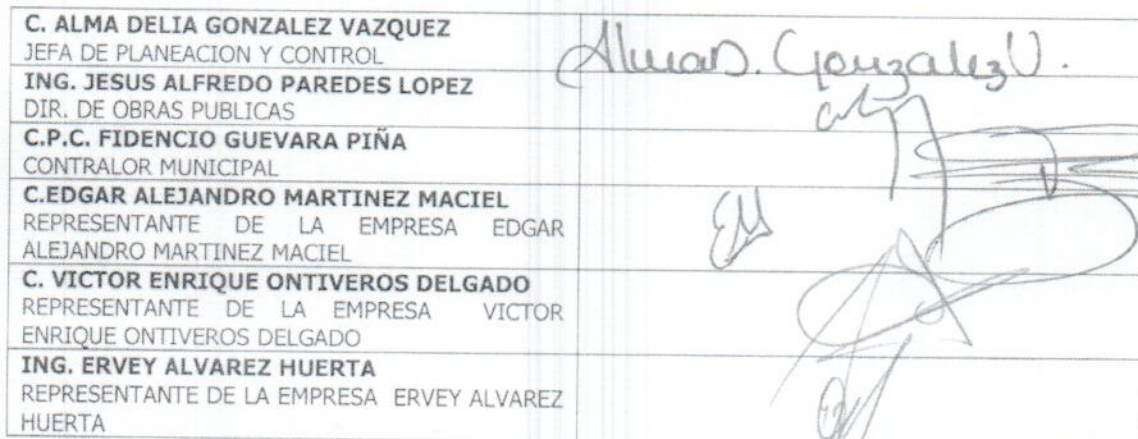 C. ALMA DELIA GONZALEZ VAZQUEZ
JEFA DE PLANEACION Y CONTROL
Alma D. Gonzalez V.
ING. JESUS ALFREDO PAREDES LOPEZ
DIR. DE OBRAS PUBLICAS
C.P.C. FIDENCIO GUEVARA PIÑA
CONTRALOR MUNICIPAL
C.EDGAR ALEJANDRO MARTINEZ MACIEL
REPRESENTANTE DE LA EMPRESA EDGAR
ALEJANDRO MARTINEZ MACIEL
EM
C. VICTOR ENRIQUE ONTIVEROS DELGADO
REPRESENTANTE DE LA EMPRESA VICTOR
ENRIQUE ONTIVEROS DELGADO
ING. ERVEY ALVAREZ HUERTA
REPRESENTANTE DE LA EMPRESA ERVEY ALVAREZ
HUERTA